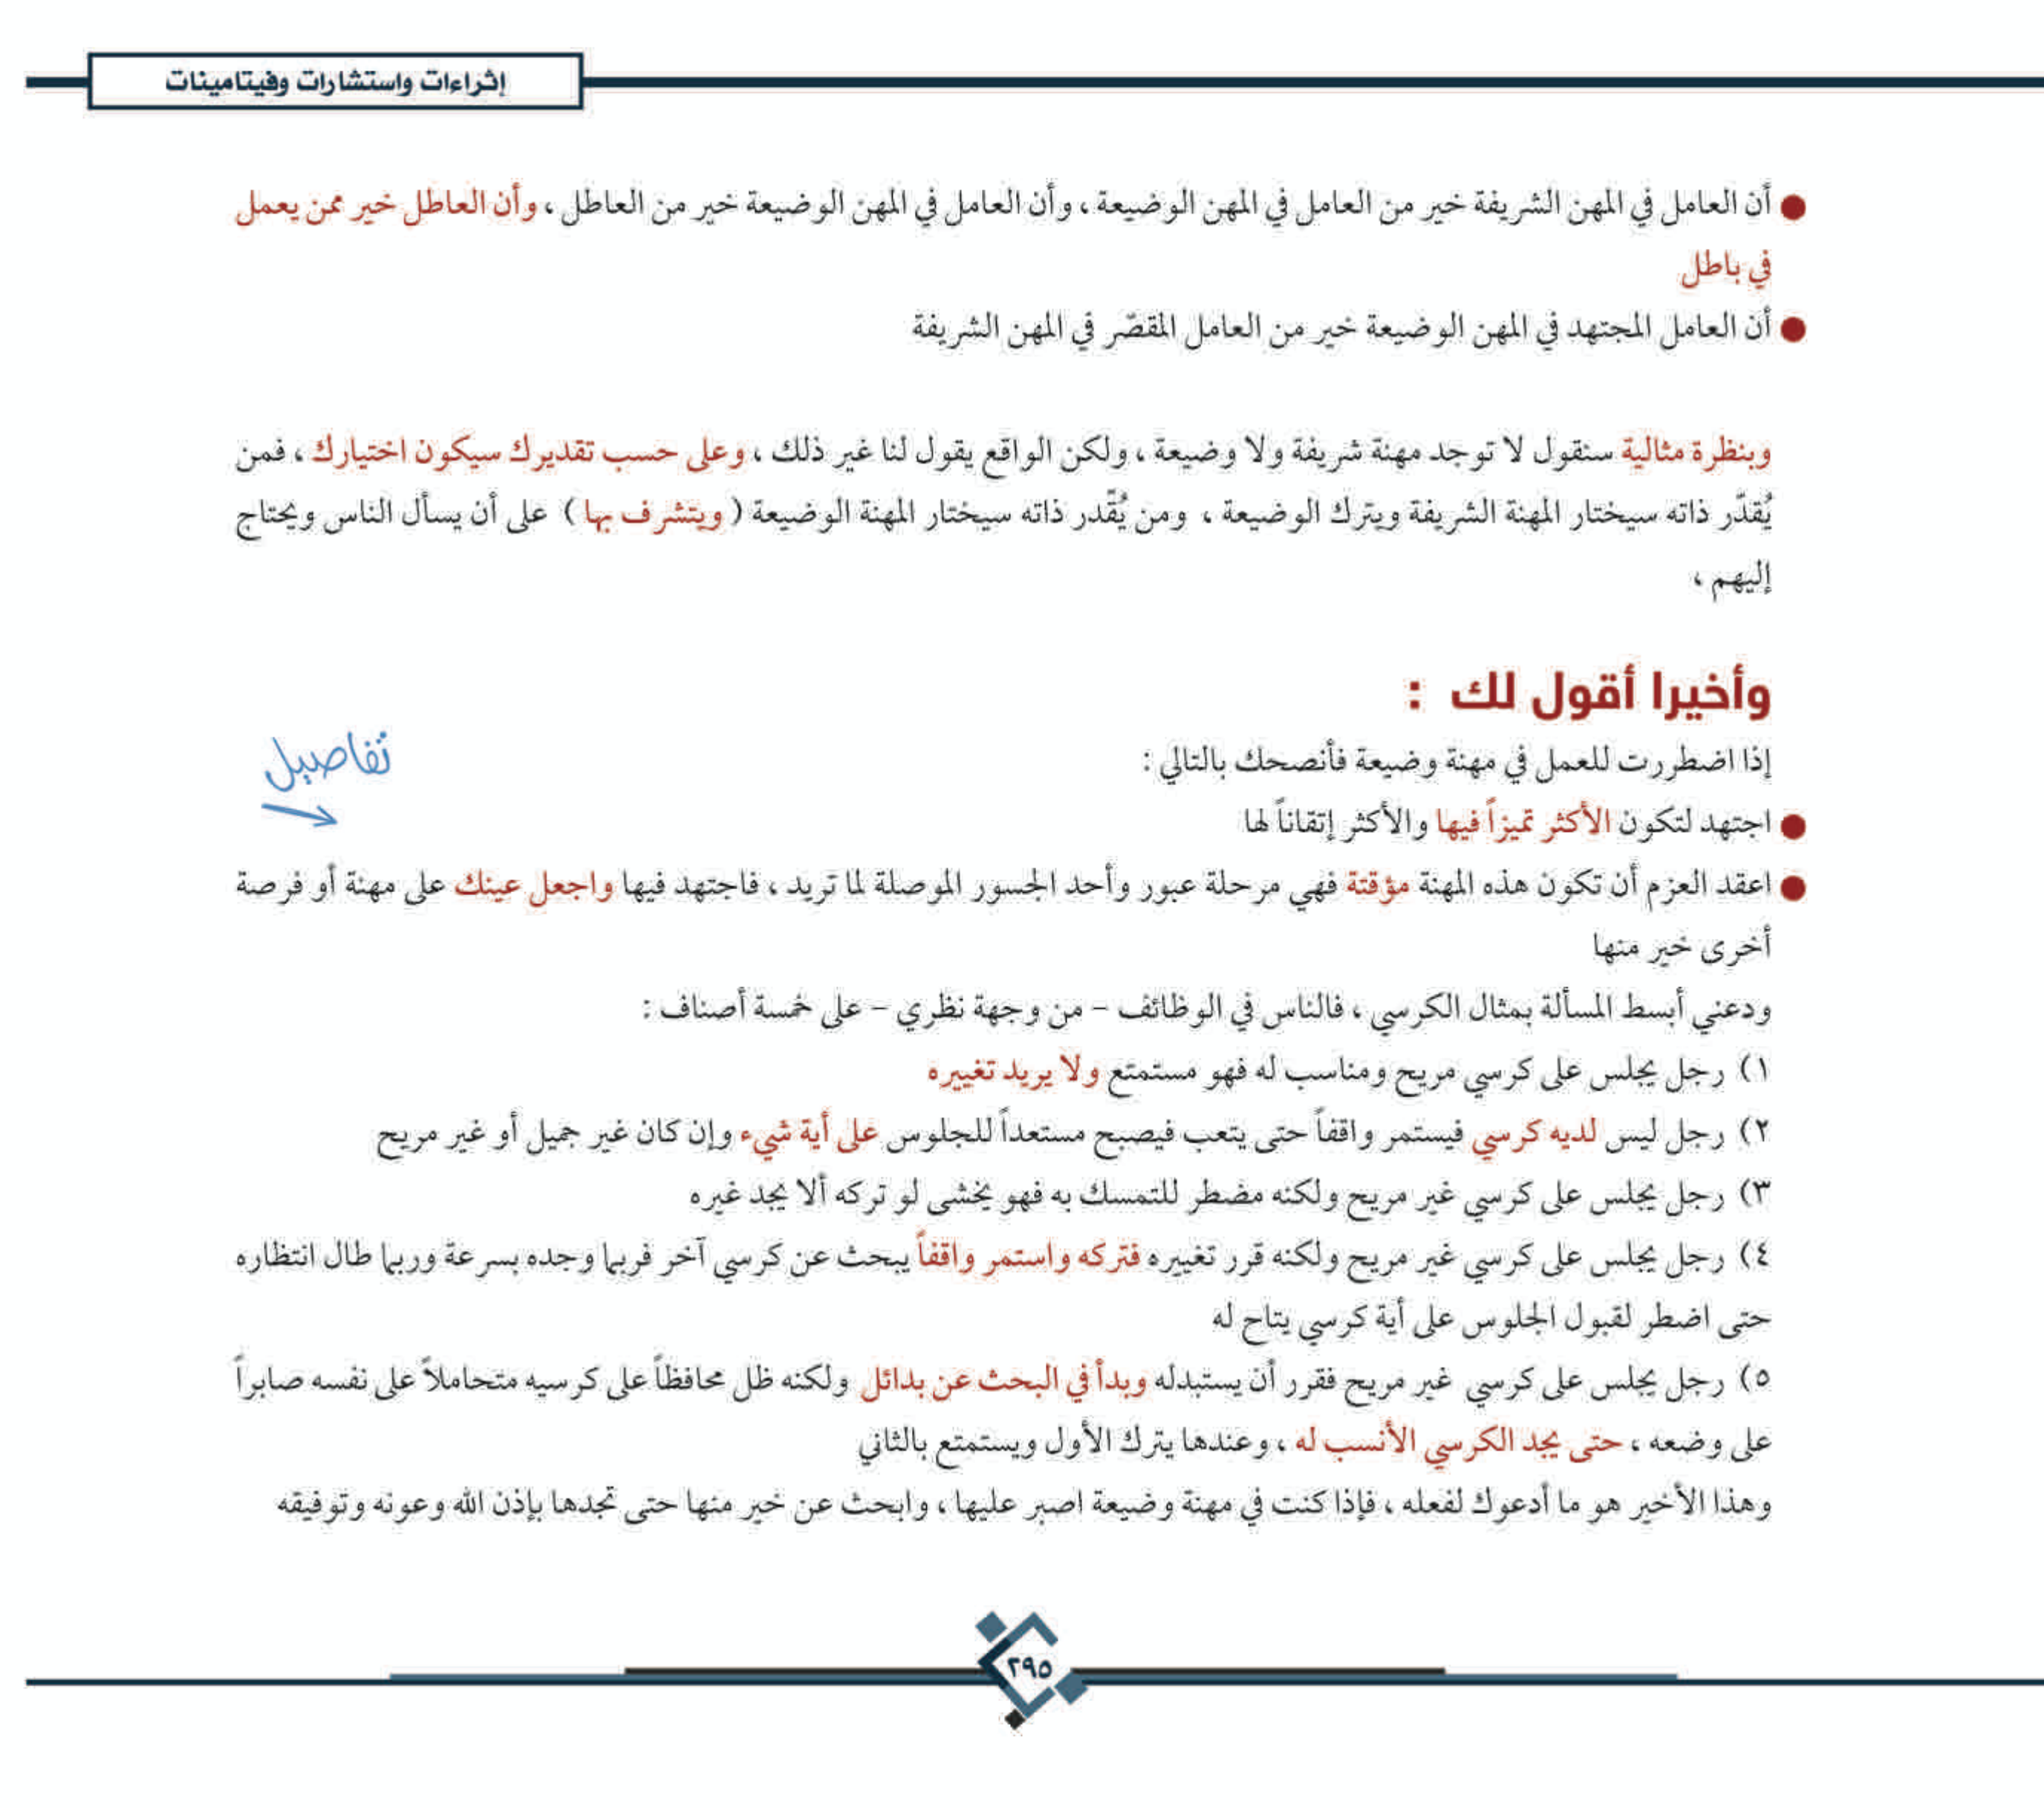 إثراءات واستشارات وفيتامينات
● أن العامل في المهن الشريفة خير من العامل في المهن الوضيعة ، وأن العامل في المهن الوضيعة خير من العاطل ، وأن العاطل خير ممن يعمل
في باطل
● أن العامل المجتهد في المهن الوضيعة خير من العامل المقصّر في المهن الشريفة
وبنظرة مثالية سنقول لا توجد مهنة شريفة ولا وضيعة ، ولكن الواقع يقول لنا غير ذلك ، وعلى حسب تقديرك سيكون اختيارك ، فمن
يُقدّر ذاته سيختار المهنة الشريفة ويترك الوضيعة ، ومن يُقّدر ذاته سيختار المهنة الوضيعة ( ويتشرف بها ) على أن يسأل الناس ويحتاج
إليهم ،
وأخيرا أقول لك :
إذا اضطررت للعمل في مهنة وضيعة فأنصحك بالتالي :
تفاصيل
● اجتهد لتكون الأكثر تميزاً فيها والأكثر إتقاناً لها
● اعقد العزم أن تكون هذه المهنة مؤقتة فهي مرحلة عبور وأحد الجسور الموصلة لما تريد ، فاجتهد فيها واجعل عينك على مهنة أو فرصة
أخرى خير منها
ودعني أبسط المسألة بمثال الكرسي ، فالناس في الوظائف – من وجهة نظري – على خمسة أصناف :
١) رجل يجلس على كرسي مريح ومناسب له فهو مستمتع ولا يريد تغييره
٢) رجل ليس لديه كرسي فيستمر واقفاً حتى يتعب فيصبح مستعداً للجلوس على أية شيء وإن كان غير جميل أو غير مريح
٣) رجل يجلس على كرسي غير مريح ولكنه مضطر للتمسك به فهو يخشى لو تركه ألا يجد غيره
٤) رجل يجلس على كرسي غير مريح ولكنه قرر تغييره فتركه واستمر واقفاً يبحث عن كرسي آخر فربما وجده بسرعة وربما طال انتظاره
حتى اضطر لقبول الجلوس على أية كرسي يتاح له
٥) رجل يجلس على كرسي غير مريح فقرر أن يستبدله وبدأ في البحث عن بدائل ولكنه ظل محافظاً على كرسيه متحاملاً على نفسه صابراً
على وضعه ، حتى يجد الكرسي الأنسب له ، وعندها يترك الأول ويستمتع بالثاني
وهذا الأخير هو ما أدعوك لفعله ، فإذا كنت في مهنة وضيعة اصبر عليها ، وابحث عن خير منها حتى تجدها بإذن الله وعونه وتوفيقه
٢٩٥